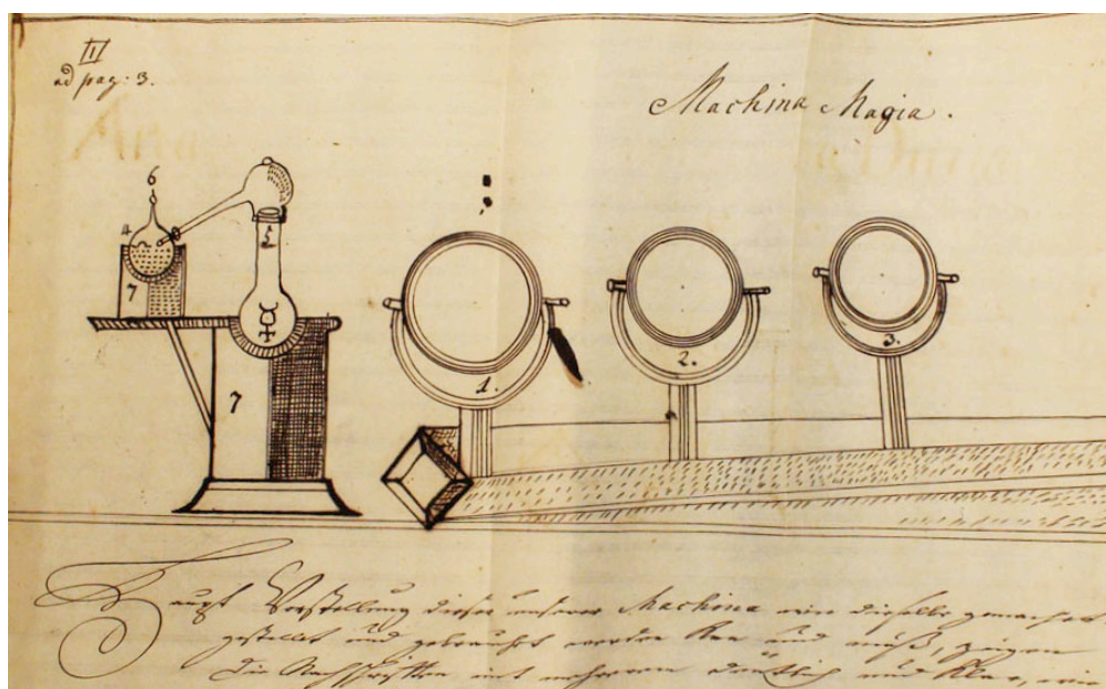 ad pag: 3.
Machina Magia.
6
4
5
7
☿
7
1.
2.
3.
Haupt Vorstellung dieser unserer Machina wie dieselbe gemachet
gestellet und gebraucht werden kan und muß, zeigen
die Nachschrifften mit mehrern deutlich und klar, wie